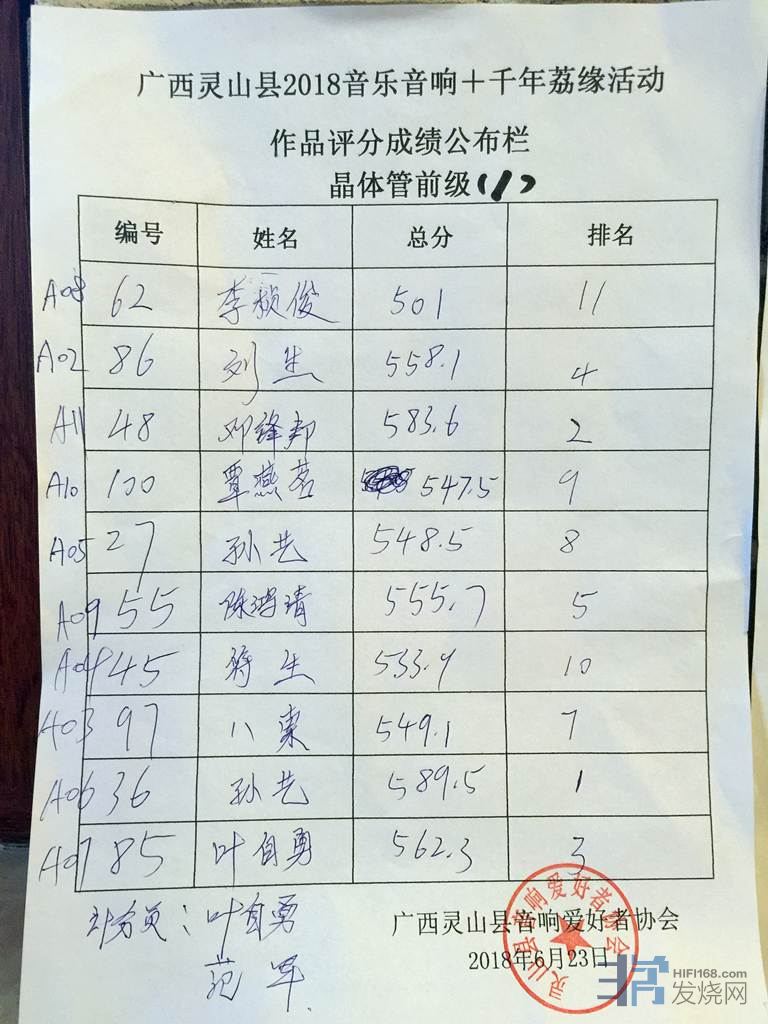 广西灵山县2018音乐音响＋千年荔缘活动
作品评分成绩公布栏
晶体管前级(1)
编号 姓名 总分 排名
A08 62 李祯俊 501 11
A02 86 刘生 558.1 4
A11 48 邓锋邦 583.6 2
A10 100 覃燕茗 547.5 9
A05 27 孙艺 548.5 8
A09 55 陈鸿清 555.7 5
A04 45 蒋生 533.9 10
A03 97 八束 549.1 7
A06 36 孙艺 589.5 1
A07 85 叶自勇 562.3 3
计分员：叶自勇
范军
广西灵山县音响爱好者协会
2018年6月23日
灵山县音响爱好者协会
HIFI168.com
发烧网